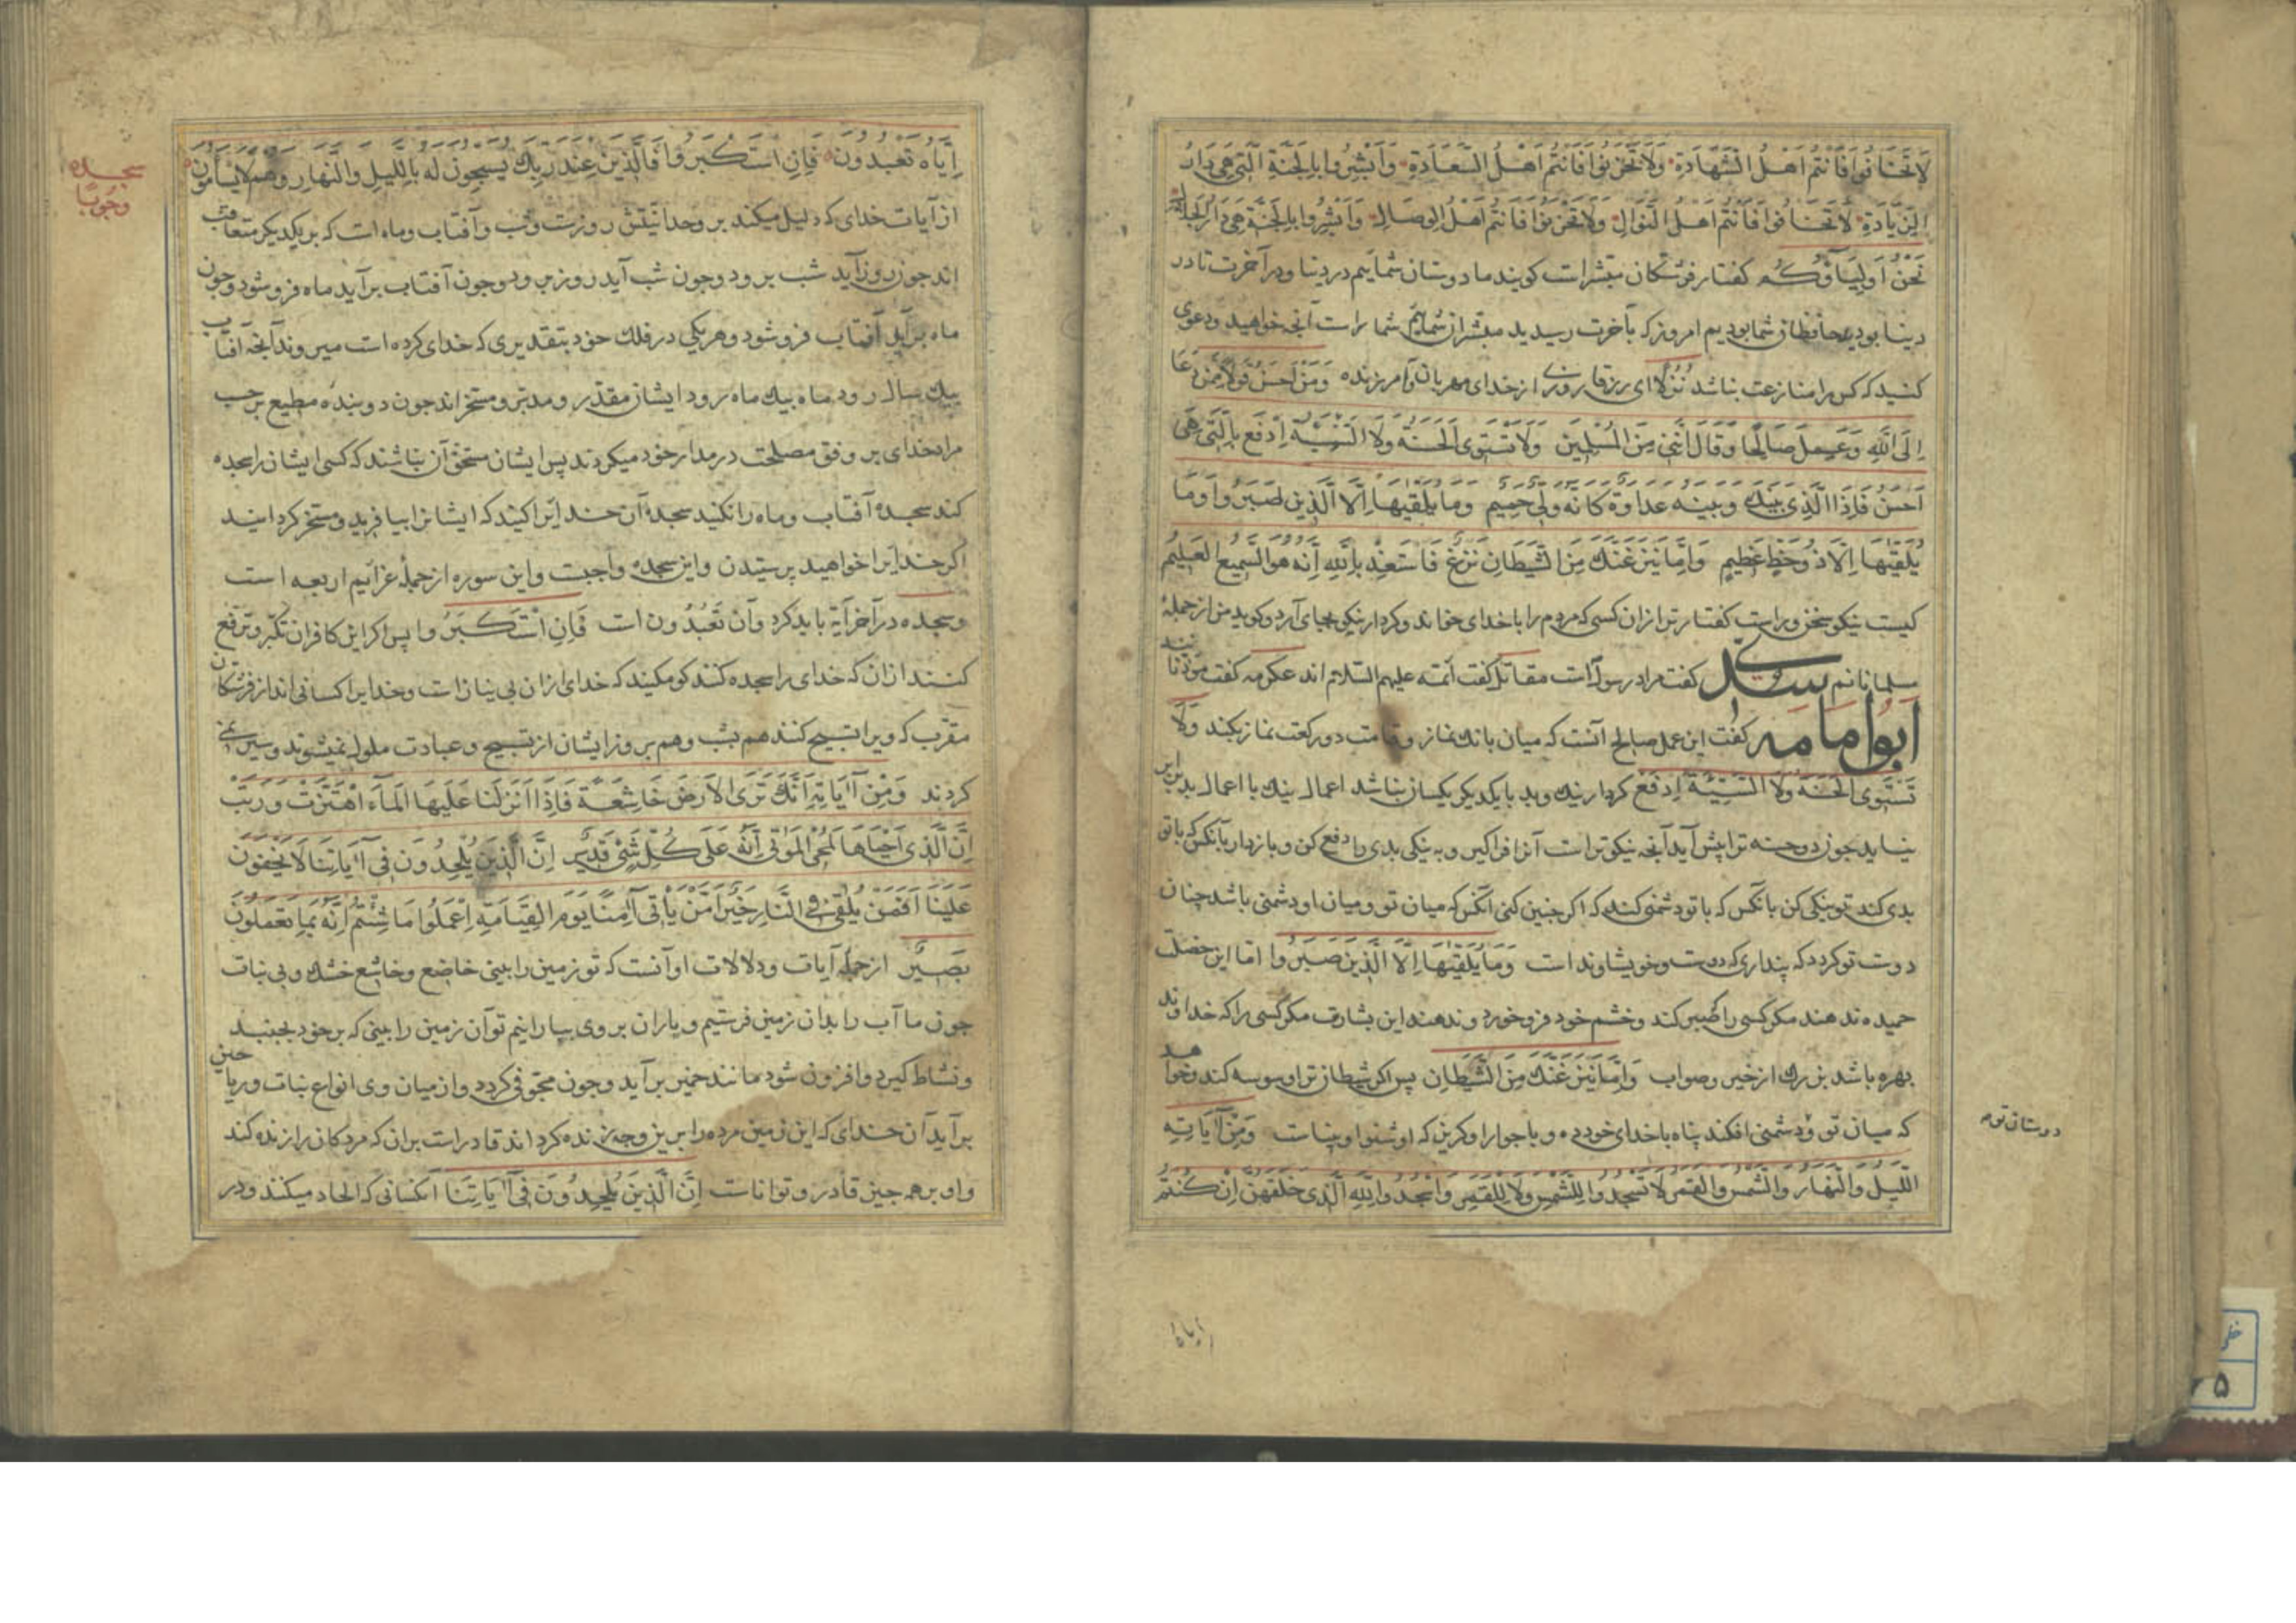 لا تخافوا فانتم اهل الشهادة ولا تحزنوا فانتم اهل السعادة وابشروا بالجنة التی هی دار
الزیادة لا تخافوا فانتم اهل النوال ولا تحزنوا فانتم اهل الوصال وابشروا بالجنة هی دار الجلال
نَحْنُ اَوْلِیَاؤُکُمْ کفتار فرشتکان مبشر است کویند ما دوستان شماییم در دنیا ودر آخرت تا در
دینا بودید حافظان شما بودیم امروز که بآخرت رسیدید مبشران شماییم شما راست آنجه خواهید ودعوی
کنید که کس را منازعت نباشد نُزُلًا ای رزقا روزی از خدای مهربان وآمرزنده وَمَنْ اَحْسَنُ قَوْلًا مِمَّنْ دَعَا
اِلَی اللّٰهِ وَعَمِلَ صَالِحًا وَقَالَ اِنَّنِی مِنَ الْمُسْلِمِینَ وَلَا تَسْتَوِی الْحَسَنَةُ وَلَا السَّیِّئَةُ اِدْفَعْ بِالَّتِی هِیَ
اَحْسَنُ فَاِذَا الَّذِی بَیْنَكَ وَبَیْنَهُ عَدَاوَةٌ کَاَنَّهُ وَلِیٌّ حَمِیمٌ وَمَا یُلَقّٰیهَا اِلَّا الَّذِینَ صَبَرُوا وَمَا
یُلَقّٰیهَا اِلَّا ذُو حَظٍّ عَظِیمٍ وَاِمَّا یَنْزَغَنَّكَ مِنَ الشَّیْطَانِ نَزْغٌ فَاسْتَعِذْ بِاللّٰهِ اِنَّهُ هُوَ السَّمِیعُ الْعَلِیمُ
کیست نیکو سخن وراست کفتارتر ازان کسی که مردم را با خدای خواند وکردار نیکو بجای آرد وکوید من از جملۀ
مسلمانانم سدی کفت مراد رسول است مقاتل کفت ائمه علیهم السلام اند عکرمه کفت مؤذنانند
ابوامامه کفت این عمل صالح آنست که میان بانك نماز وقامت دو رکعت نماز بکند وَلَا
تَسْتَوِی الْحَسَنَةُ وَلَا السَّیِّئَةُ اِدْفَعْ کردار نیك وبد با یکدیکر یکسان نباشد اعمال نیك با اعمال بد برابر
نیاید جون دو حسنه ترا پیش آید آنجه نیکوتر است آنرا فراکیر وبه نیکی بدی را دفع کن وبازدار با آنکس که با تو
بدی کند تو نیکی کن با آنکس که با تو دشمنی کند که اکر جنین کنی آنکس که میان تو ومیان او دشمنی باشد جنان
دوست تو کردد که پنداری که دوست وخویشاوند است وَمَا یُلَقّٰیهَا اِلَّا الَّذِینَ صَبَرُوا اما این خصلت
حمیده ندهند مکر کسی را که صبر کند وخشم خود فرو خورد وندهند این بشارت مکر کسی را که خداوند
بهره باشد بزرك از خیر وصواب وَاِمَّا یَنْزَغَنَّكَ مِنَ الشَّیْطَانِ پس اکر شیطان ترا وسوسه کند وخواهد
که میان تو ودشمنی افکند پناه با خدای خود ده وبا جوار او کریز که او شنوا وبیناست وَمِنْ آیَاتِهِ
اللَّیْلُ وَالنَّهَارُ وَالشَّمْسُ وَالْقَمَرُ لَا تَسْجُدُوا لِلشَّمْسِ وَلَا لِلْقَمَرِ وَاسْجُدُوا لِلّٰهِ الَّذِی خَلَقَهُنَّ اِنْ کُنْتُمْ
دوستان توم
ایاه
اِیَّاهُ تَعْبُدُونَ فَاِنِ اسْتَکْبَرُوا فَالَّذِینَ عِنْدَ رَبِّكَ یُسَبِّحُونَ لَهُ بِاللَّیْلِ وَالنَّهَارِ وَهُمْ لَا یَسْاَمُونَ
سجده
وجوبًا
از آیات خدای که دلیل میکند بر وحدانیتش روزست وشب وآفتاب وماه است که بر یکدیکر متعاقب
اند جون روز آید شب برود وجون شب آید روز برود وجون آفتاب برآید ماه فرو شود وجون
ماه برآید آفتاب فرو شود وهر یکی در فلك خود بتقدیری که خدای کرده است میروند آنجه آفتاب
بیك سال رود ماه بیك ماه رود ایشان مقدر ومدبر ومسخر اند جون دو بنده مطیع بر حسب
مراد خدای بر وفق مصلحت در مدار خود میکردند پس ایشان مستحق آن نباشند که کسی ایشان را سجده
کند سجدۀ آفتاب وماه را نکنید سجدۀ آن خدایرا کنید که ایشانرا بیافرید ومسخر کردانید
اکر خدایرا خواهید پرستیدن واین سجده واجبست واین سوره از جملۀ عزائم اربعه است
وسجده در آخر آیة باید کرد وآن تَعْبُدُونَ است فَاِنِ اسْتَکْبَرُوا پس اکر این کافران تکبر وترفع
کنند ازان که خدای را سجده کنند کو مکنید که خدای ازان بی نیاز است وخدایرا کسانی اند از فرشتکان
مقرب که ویرا تسبیح کنند هم بشب وهم بروز ایشان از تسبیح وعبادت ملول نمیشوند وسیر نمی
کردند وَمِنْ آیَاتِهِ اَنَّكَ تَرَی الْاَرْضَ خَاشِعَةً فَاِذَا اَنْزَلْنَا عَلَیْهَا الْمَاءَ اهْتَزَّتْ وَرَبَتْ
اِنَّ الَّذِی اَحْیَاهَا لَمُحْیِ الْمَوْتٰی اِنَّهُ عَلٰی کُلِّ شَیْءٍ قَدِیرٌ اِنَّ الَّذِینَ یُلْحِدُونَ فِی آیَاتِنَا لَا یَخْفَوْنَ
عَلَیْنَا اَفَمَنْ یُلْقٰی فِی النَّارِ خَیْرٌ اَمْ مَنْ یَاْتِی آمِنًا یَوْمَ الْقِیَامَةِ اِعْمَلُوا مَا شِئْتُمْ اِنَّهُ بِمَا تَعْمَلُونَ
بَصِیرٌ از جملۀ آیات ودلالات او آنست که تو زمین را بینی خاضع وخاشع خشك وبی نبات
جون ما آب را بدان زمین فرستیم وباران بر وی ببارانیم تو آن زمین را بینی که بر خود بجنبد
ونشاط کیرد وافزون شود مانند خمیر برآید وجون مجوفی کردد وازمیان وی انواع نبات وریاحین
برآید آن خدای که این زمین مرده را برین وجه زنده کرداند قادر است بران که مردکان را زنده کند
واو بر همه جیز قادر وتواناست اِنَّ الَّذِینَ یُلْحِدُونَ فِی آیَاتِنَا آنکسانی که الحاد میکنند ودر
خطی
۵